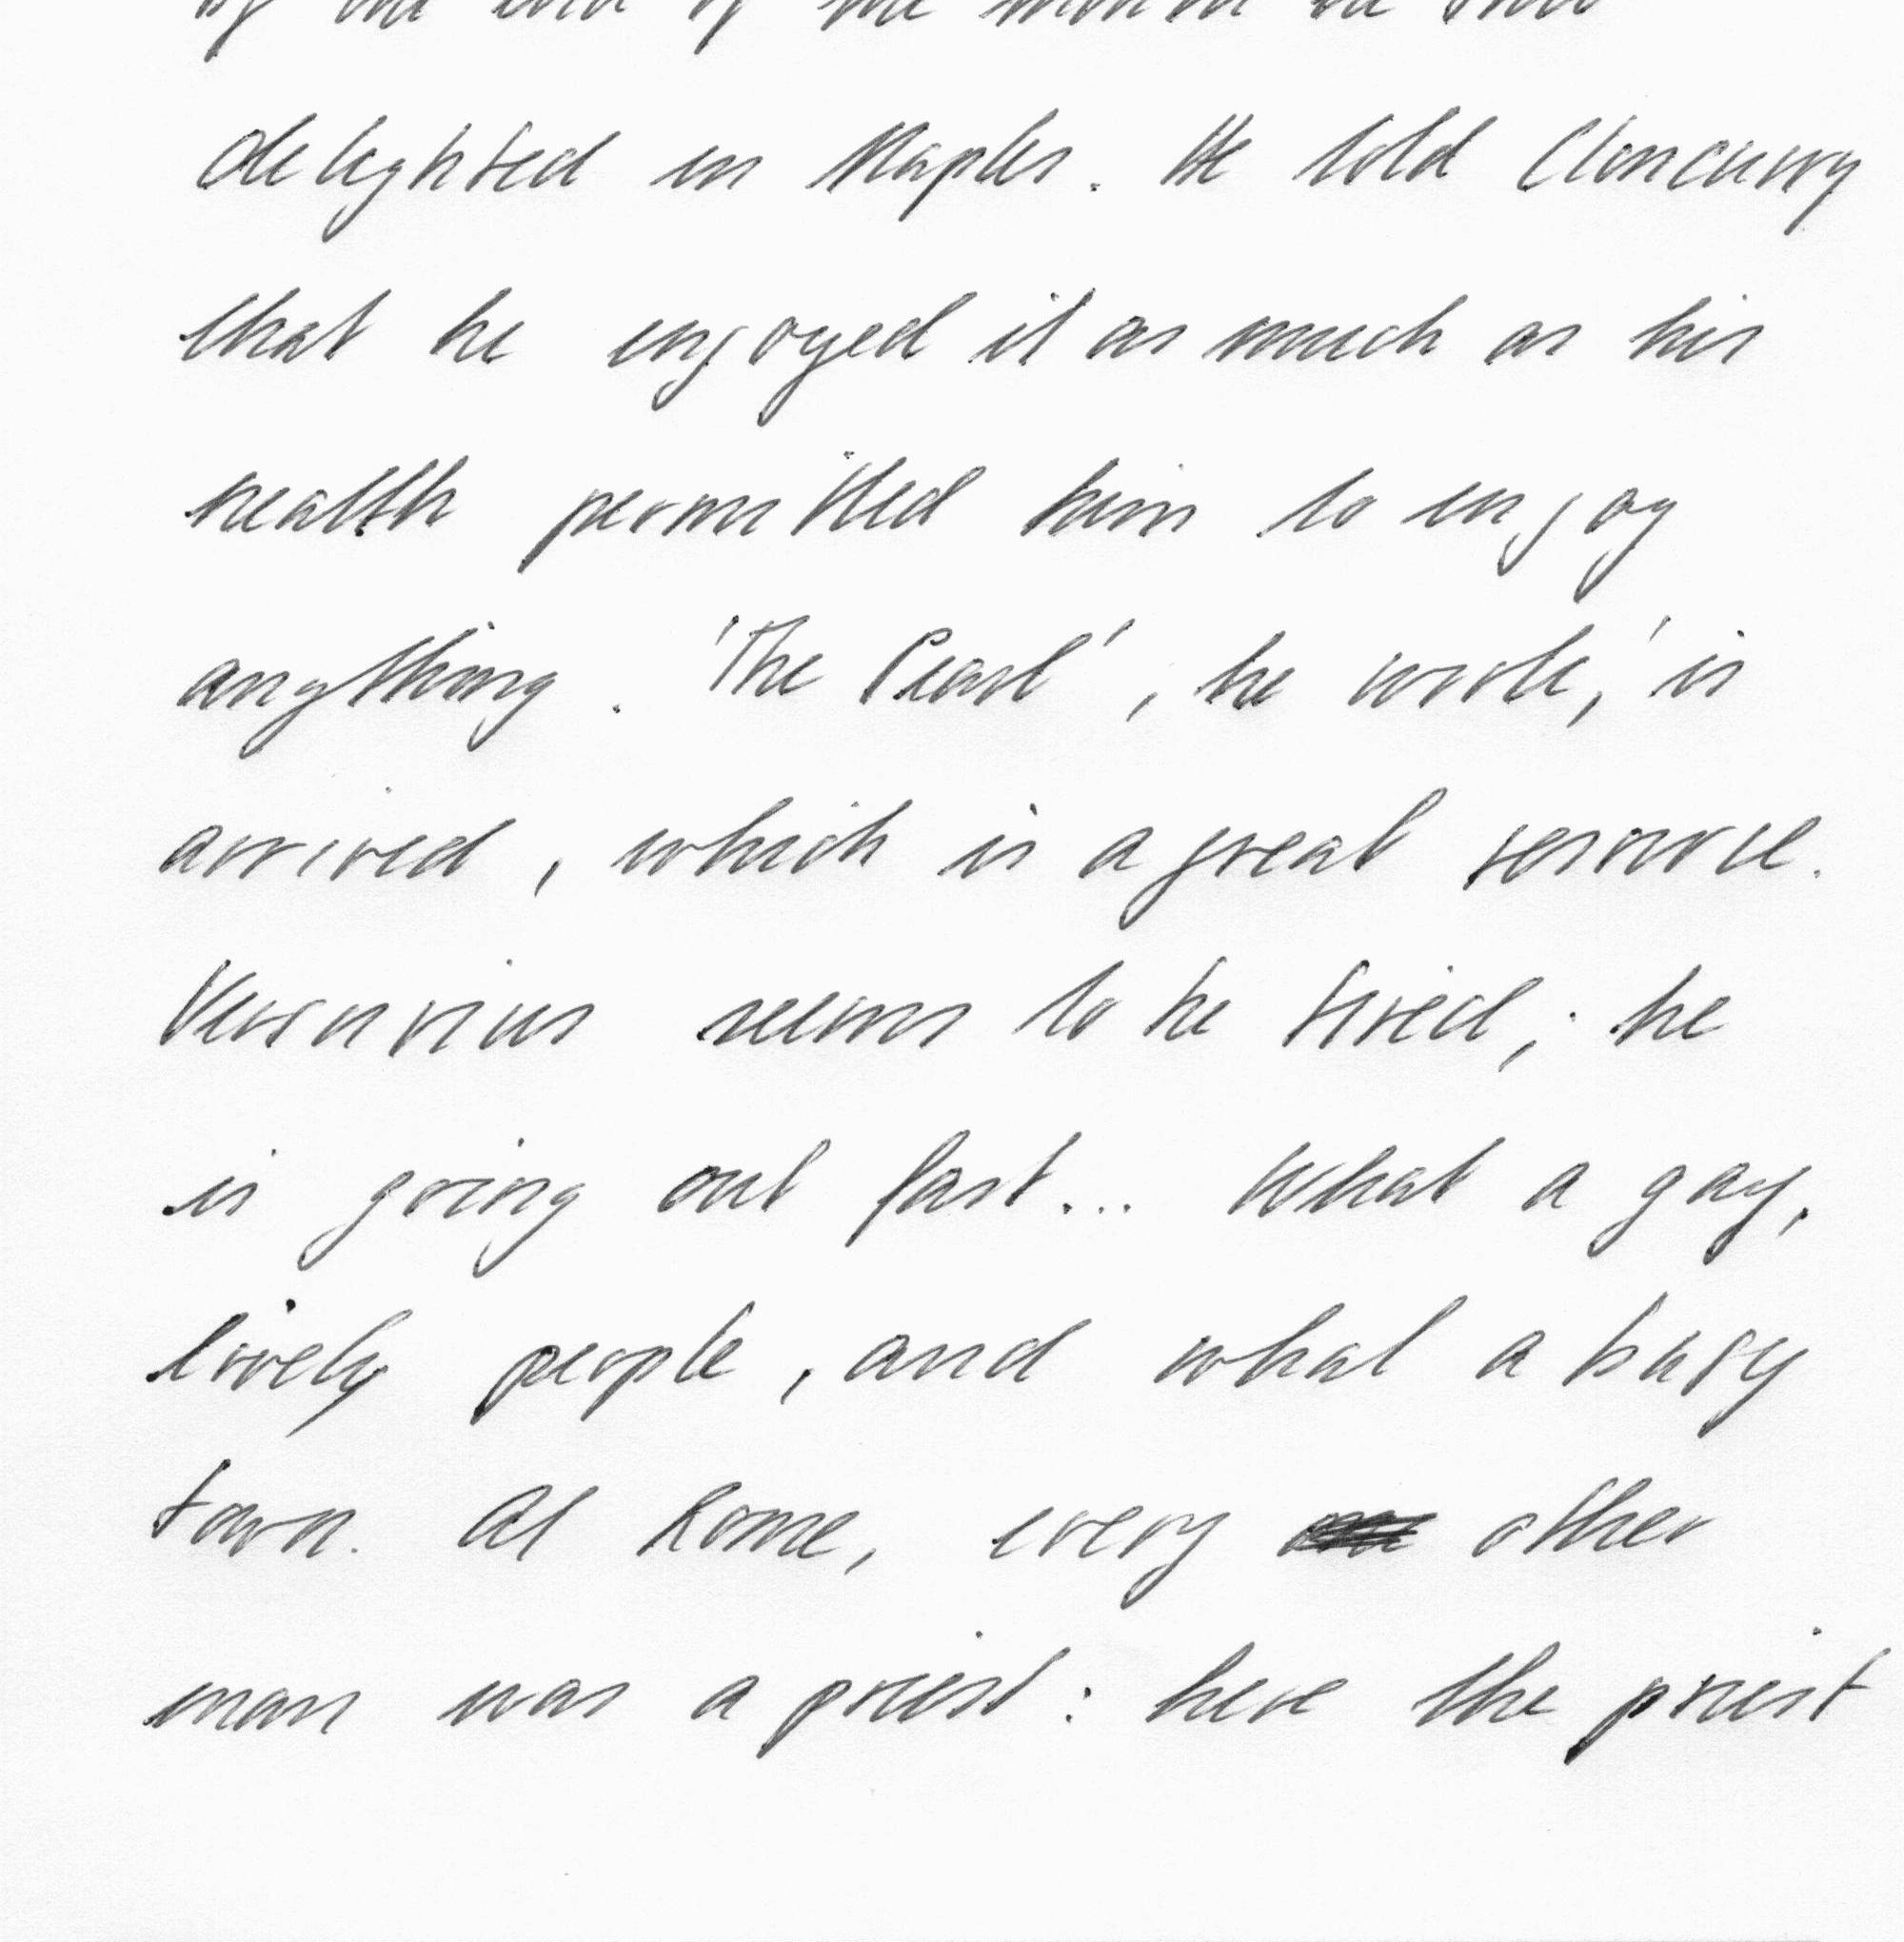 by the end of the month he still
delighted in Naples. He told Cloncurry
that he enjoyed it as much as his
health permitted him to enjoy
anything. 'The Pearl', he wrote, 'is
arrived, which is a great resource.
Vesuvius seems to be tired; he
is going out fast... What a gay,
lively people, and what a busy
town. At Rome, every other
man was a priest: here the priest